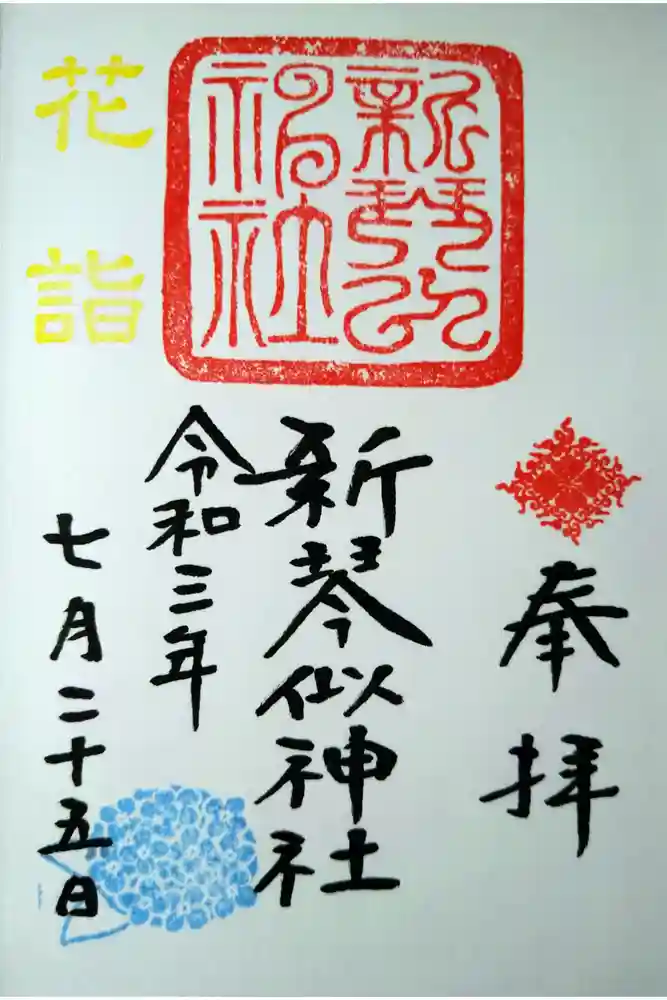 奉拝
新琴似神社
令和三年
七月二十五日
新琴似
神社
花詣